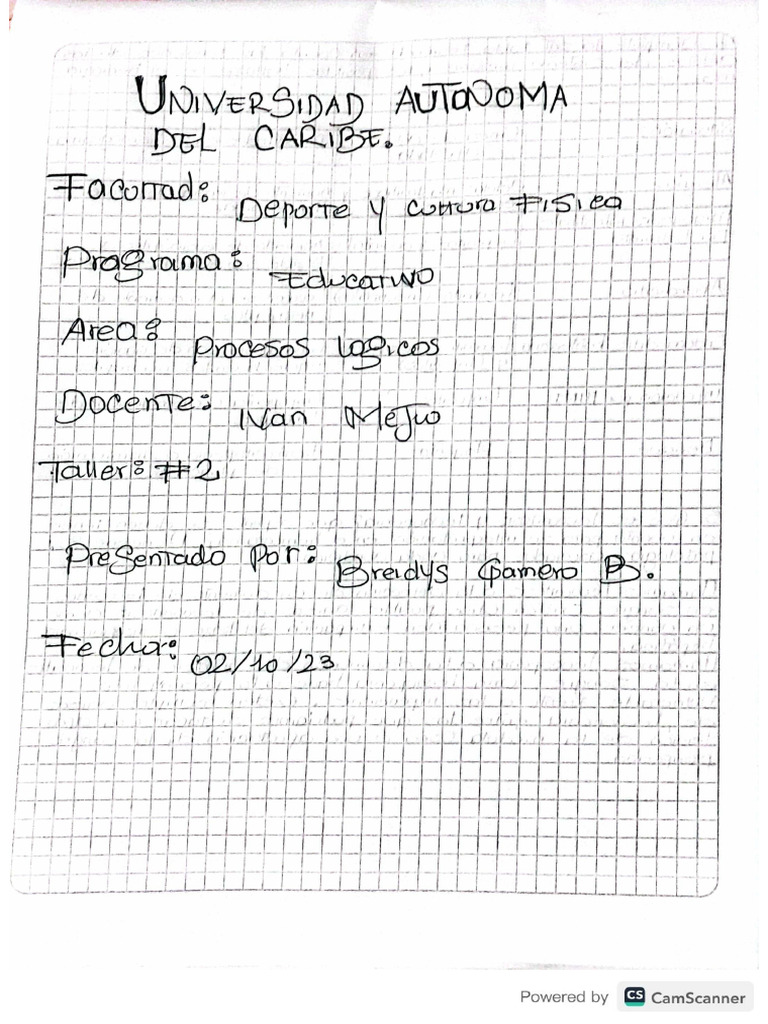 UNIVERSIDAD AUTONOMA
DEL CARIBE.
Facultad: Deporte y cultura Fisica
Programa: Educativo
Area: Procesos logicos
Docente: Ivan Mejio
Taller: #2
Presentado Por: Breidys Gamero B.
Fecha: 02/10/23
Powered by CS CamScanner